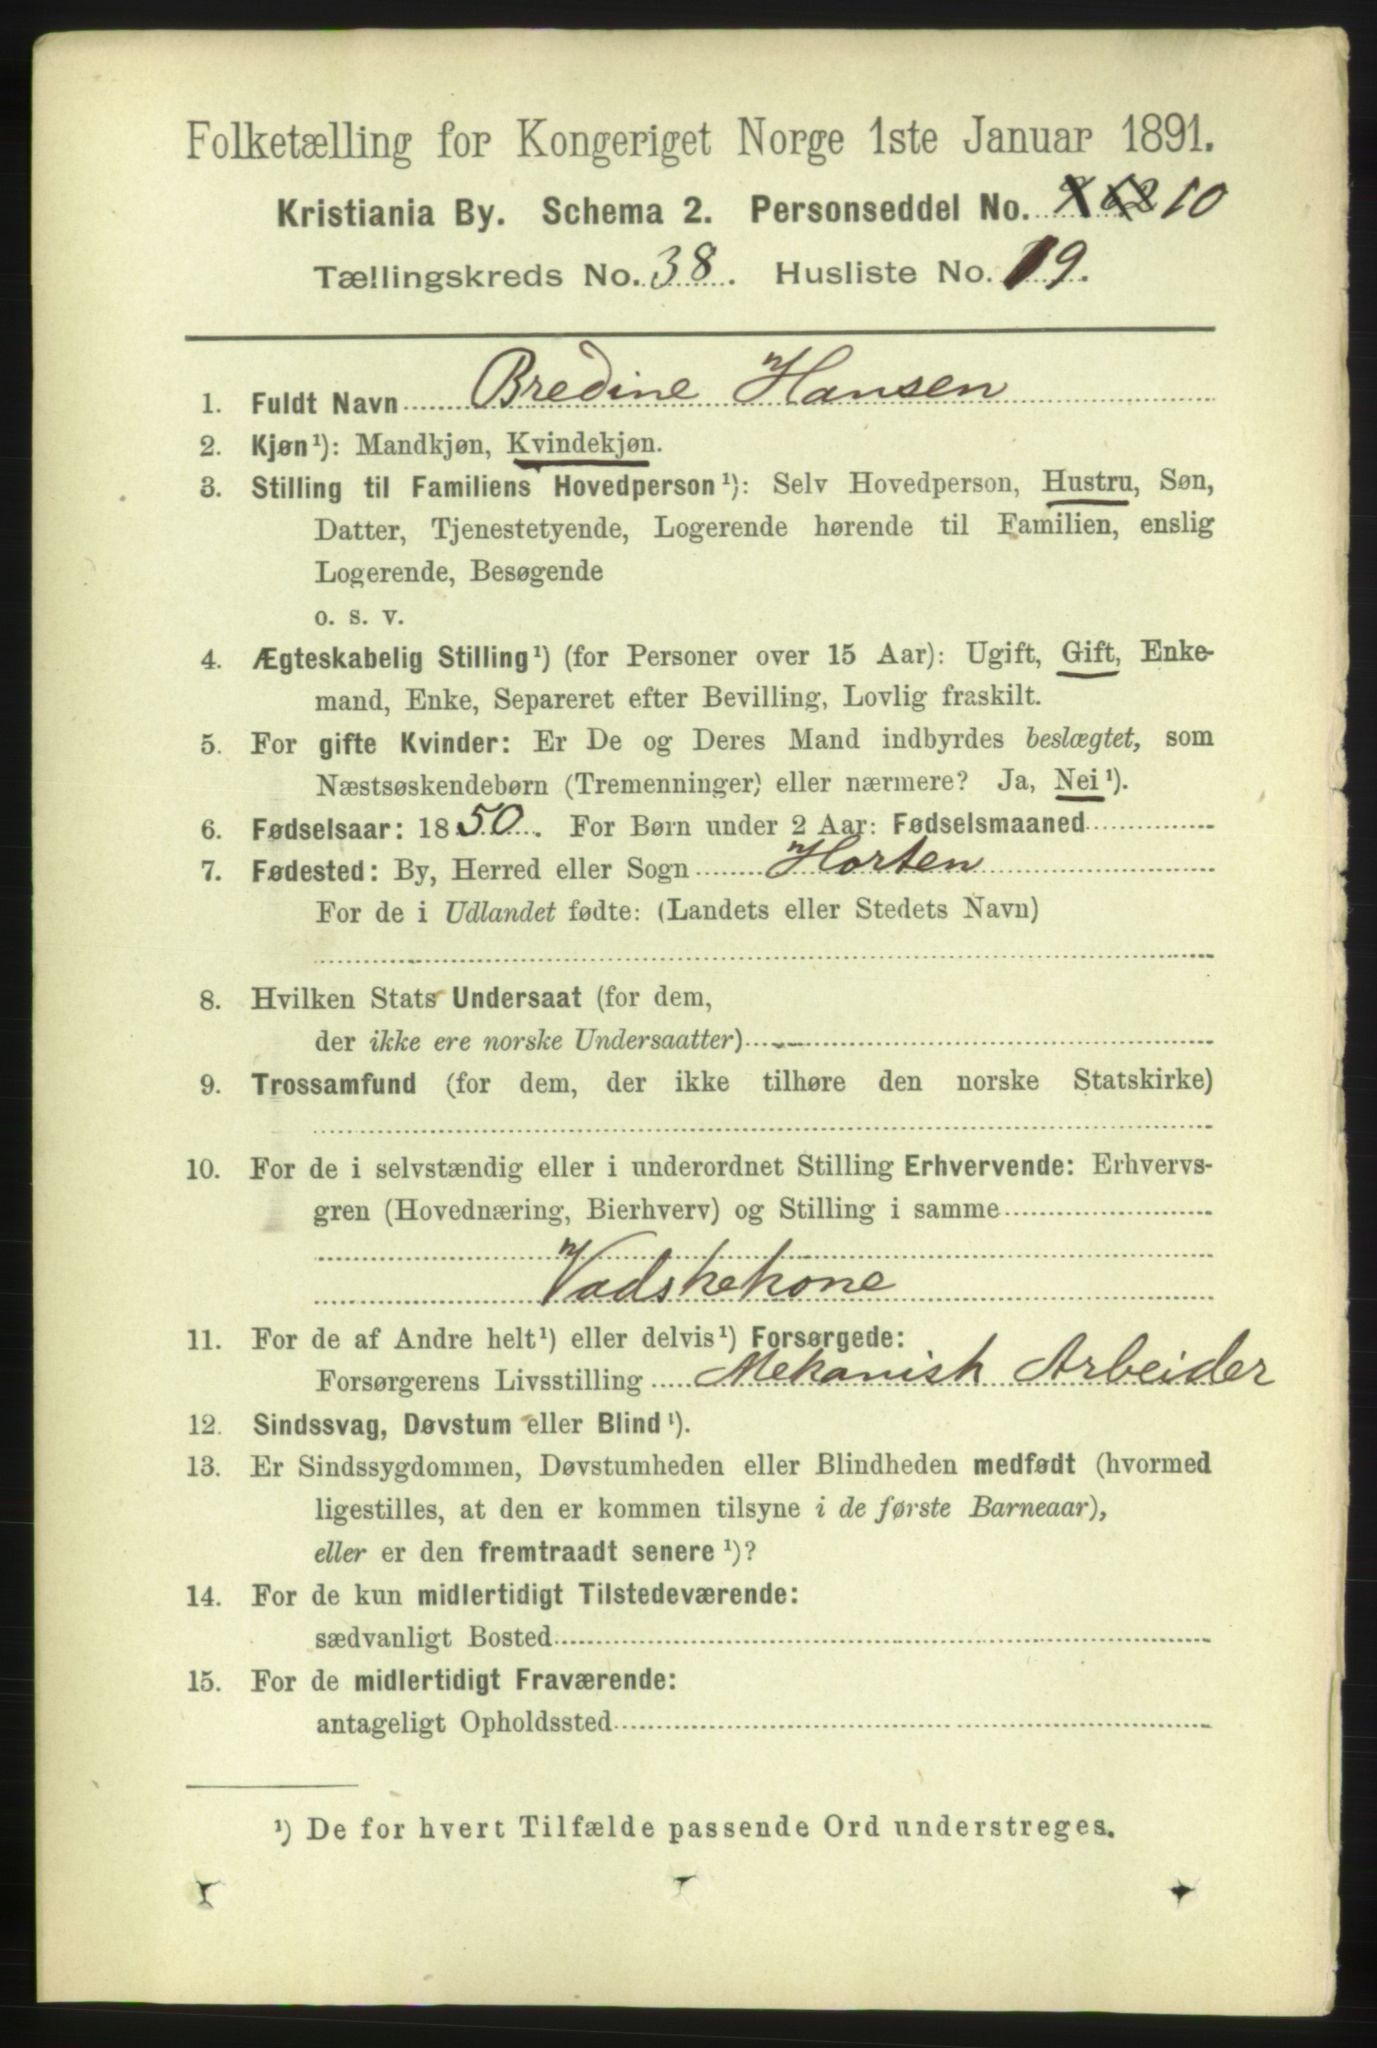 Folketælling for Kongeriget Norge 1ste Januar 1891.
Kristiania By. Schema 2. Personseddel No. 10
Tællingskreds No. 38. Husliste No. 19.
1. Fuldt Navn Bredine Hansen
2. Kjøn¹): Mandkjøn, Kvindekjøn.
3. Stilling til Familiens Hovedperson¹): Selv Hovedperson, Hustru, Søn,
Datter, Tjenestetyende, Logerende hørende til Familien, enslig
Logerende, Besøgende
o. s. v.
4. Ægteskabelig Stilling¹) (for Personer over 15 Aar): Ugift, Gift, Enke-
mand, Enke, Separeret efter Bevilling, Lovlig fraskilt.
5. For gifte Kvinder: Er De og Deres Mand indbyrdes beslægtet, som
Næstsøskendebørn (Tremenninger) eller nærmere? Ja, Nei¹).
6. Fødselsaar: 1850. For Børn under 2 Aar: Fødselsmaaned
7. Fødested: By, Herred eller Sogn Horten
For de i Udlandet fødte: (Landets eller Stedets Navn)
8. Hvilken Stats Undersaat (for dem,
der ikke ere norske Undersaatter)
9. Trossamfund (for dem, der ikke tilhøre den norske Statskirke)
10. For de i selvstændig eller i underordnet Stilling Erhvervende: Erhvervs-
gren (Hovednæring, Bierhverv) og Stilling i samme
Vadskekone
11. For de af Andre helt¹) eller delvis¹) Forsørgede:
Forsørgerens Livsstilling Mekanisk Arbeider
12. Sindssvag, Døvstum eller Blind¹).
13. Er Sindssygdommen, Døvstumheden eller Blindheden medfødt (hvormed
ligestilles, at den er kommen tilsyne i de første Barneaar),
eller er den fremtraadt senere¹)?
14. For de kun midlertidigt Tilstedeværende:
sædvanligt Bosted
15. For de midlertidigt Fraværende:
antageligt Opholdssted
¹) De for hvert Tilfælde passende Ord understreges.